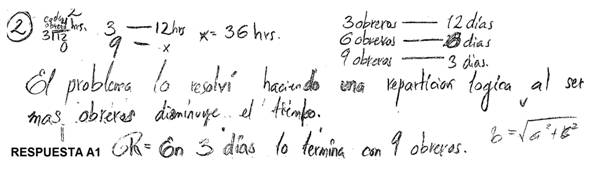 2
cada obrero 4 hrs.
3|12
0
3 — 12hrs x= 36 hrs.
9 — x
3 obreros — 12 días
6 obreros — dias
9 obreros — 3 dias.
El problema lo resolví haciendo una repartición logica al ser
mas obreros disminuye el tiempo.
RESPUESTA A1 R= En 3 días lo termina con 9 obreros.
b = √a²+c²